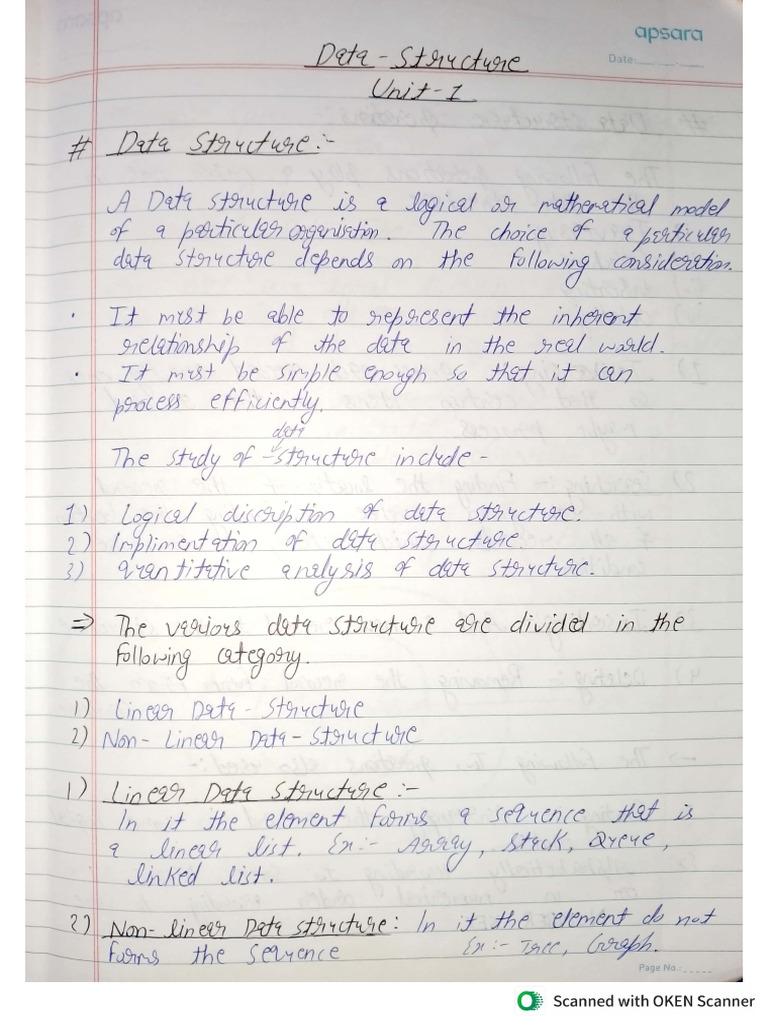 apsara
Date:
Data - Structure
Unit-1
# Data Structure :-
A Data structure is a logical or mathematical model
of a particular organisation. The choice of a particular
data structure depends on the following consideration.
· It must be able to represent the inherent
relationship of the data in the real world.
· It must be simple enough so that it can
process efficiently.
data
The study of structure include -
1) Logical discription of data structure.
2) Implimentation of data structure.
3) quantitative analysis of data structure.
⇒ The various data structure are divided in the
following category.
1) Linear Data - Structure
2) Non - Linear Data - Structure
1) Linear Data Structure :-
In it the element forms a sequence that is
a linear list. Ex:- Array, Stack, Queue,
linked list.
2) Non- linear Data structure : In it the element do not
forms the sequence Ex:- Tree, Graph.
Page No.:
Scanned with OKEN Scanner